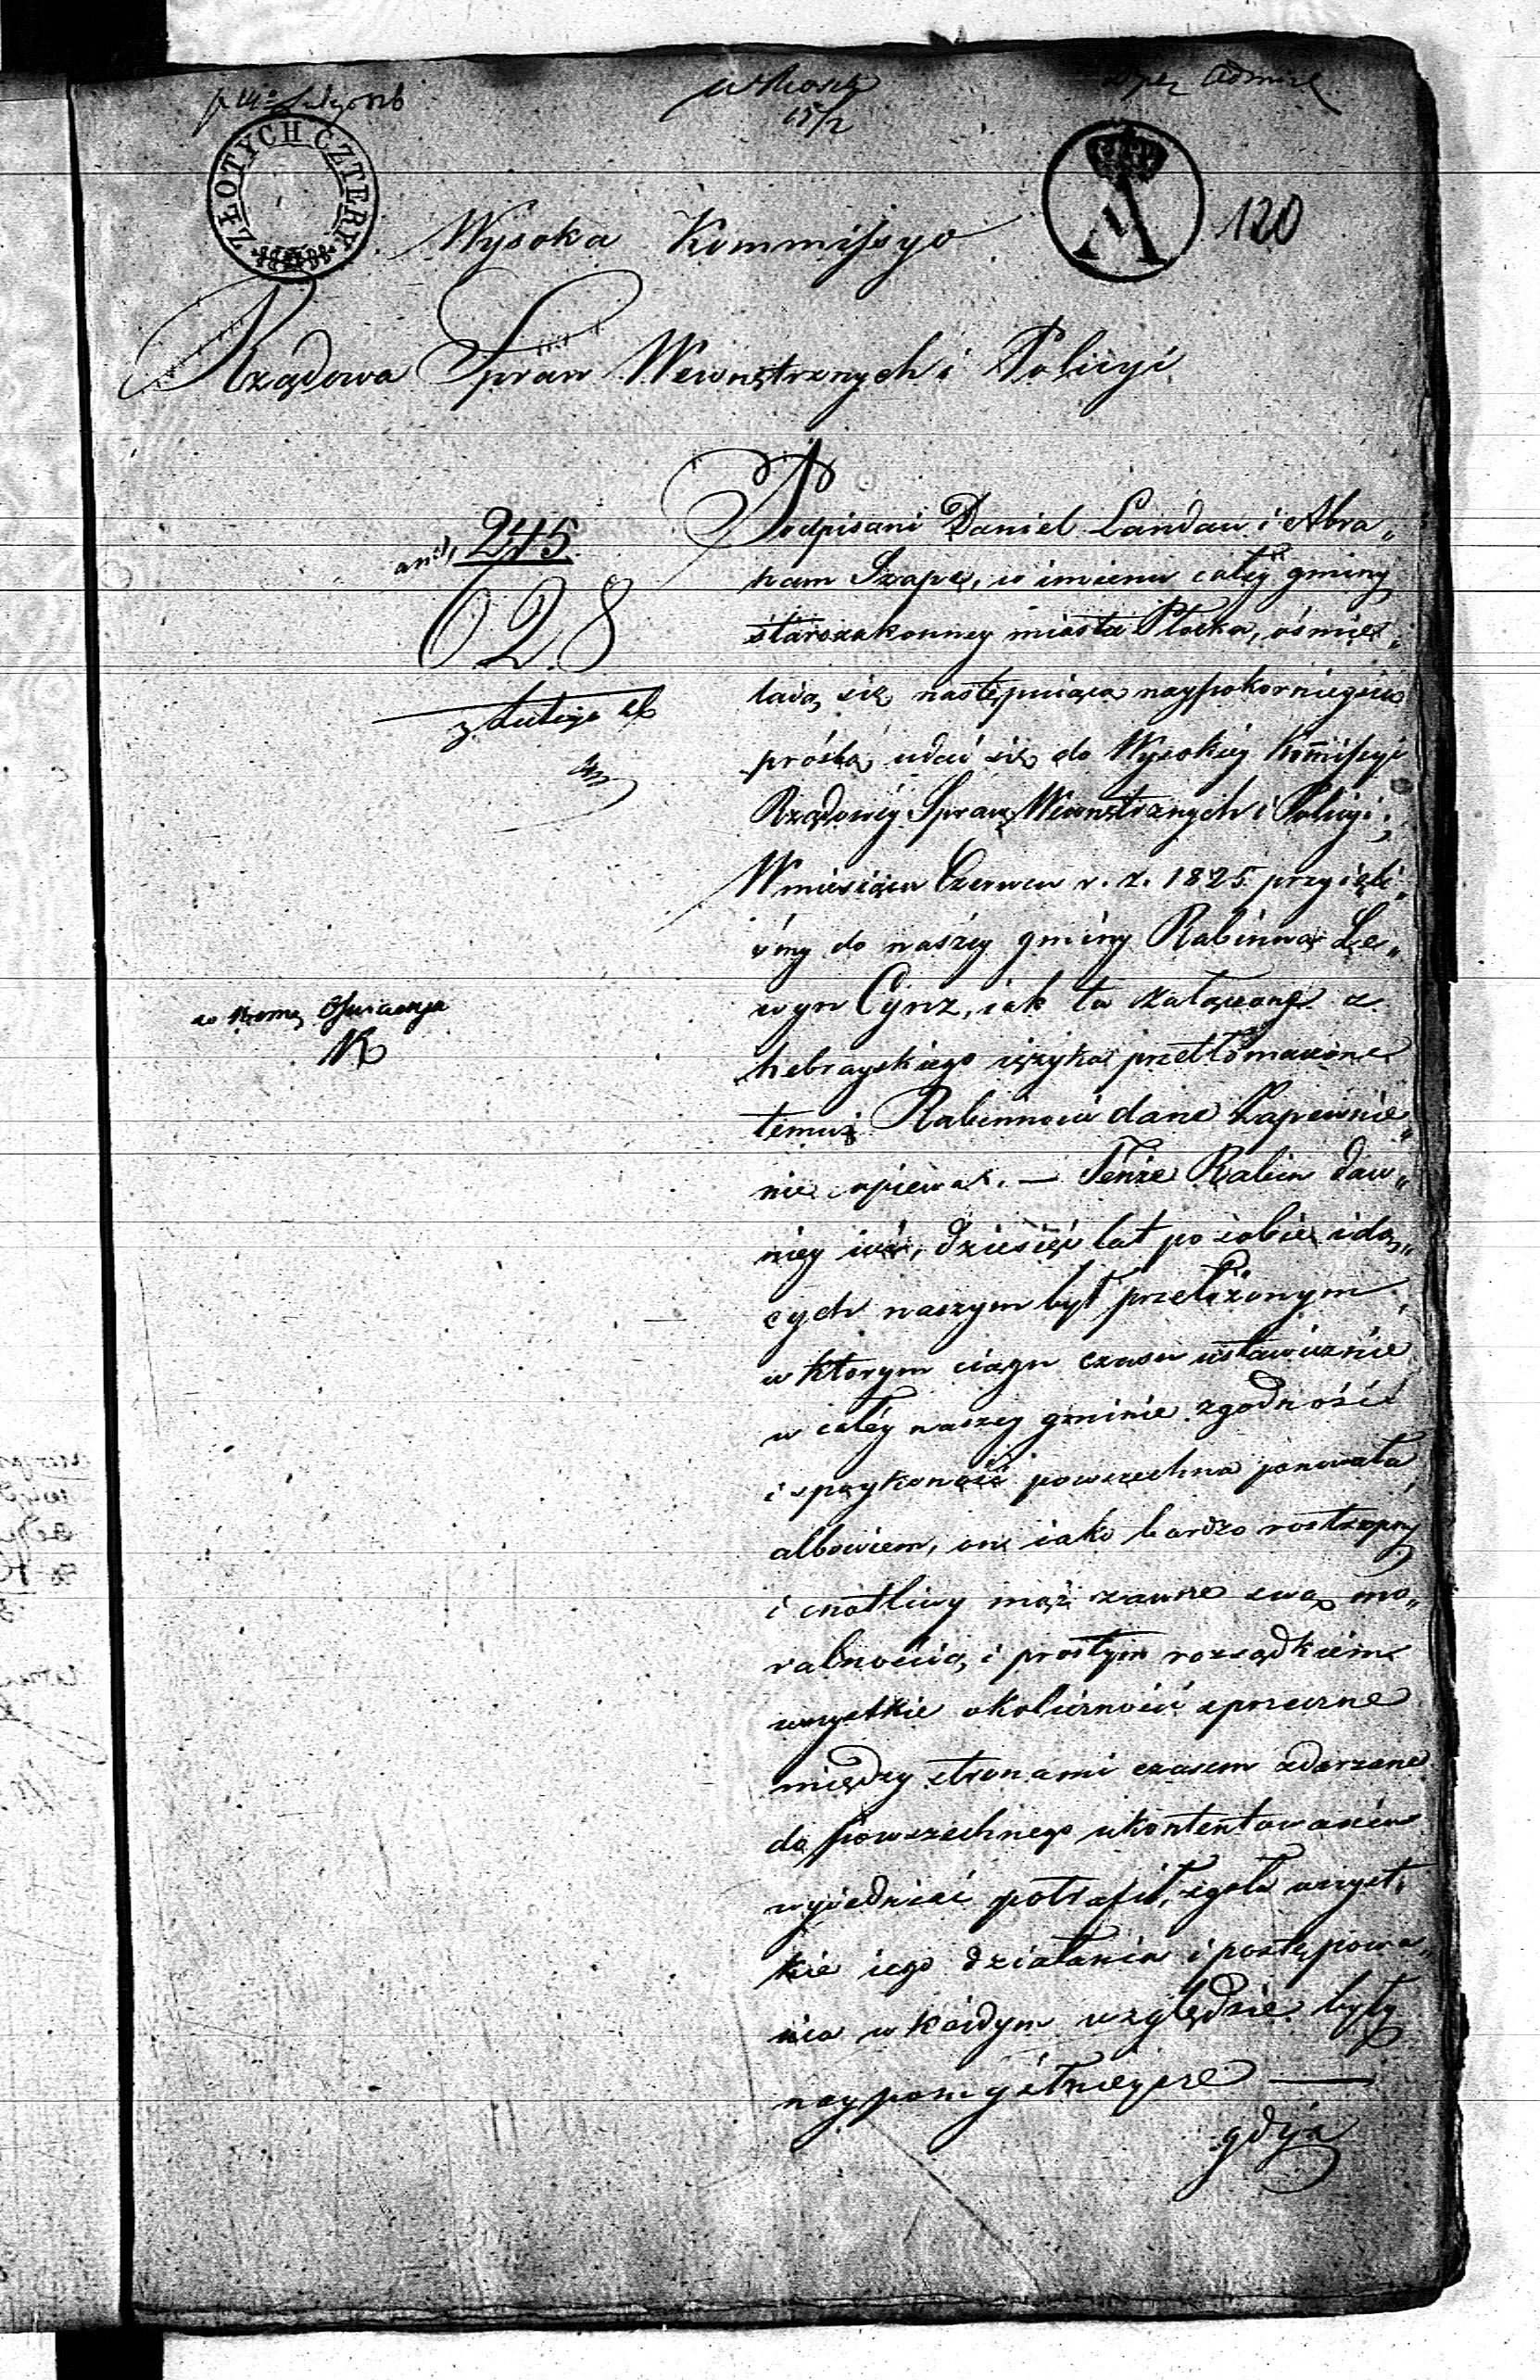 15/2
ZŁOTYCH CZTERY
A
120
Wysoka Kommissyo
Rządowa Spraw Wewnętrznych i Policyi
245
628
Podpisani Daniel Landau i Abra„
ham Szape, w imieniu całéy gminy
starozakonney miasta Płocka, ośmie„
laią się następuiącą naypokornieyszą
prósbą udać się do Wysokiéy Kommissyi
Rządowéy Spraw Wewnętrznych i Policyi;
W miesiącu Czerwcu r. z. 1825 przyięli„
śmy do naszéy gminy Rabinna Le„
wyn Cynz, iak to załączone z
hebrayskiego ięzyka przetłómaczone
temuż Rabinnowi dane Zapewnie„
nie opiewa. — Tenże Rabin daw„
niey iuż, dziesięć lat po sobie idą„
cych naszym był przełożonym
w którym ciągu czasu ustawicznie
w całéy naszey gminie zgodność
i spoykoność powszechna panowała
albowiem, on iako bardzo rostropny
i cnotliwy mąż zawsze swą mo„
ralnością i prostym rozsądkiem
wszystkie okoliczności sprzeczne
między stronami czasem zdarzane
do powszechnego ukontentowania
wyiednać potrafił, zgoła wszyst„
kie iego działania i postępowa„
nia w każdym względzie były
naypomyślnieysze —
gdyż
w Kom. Oswiecenia